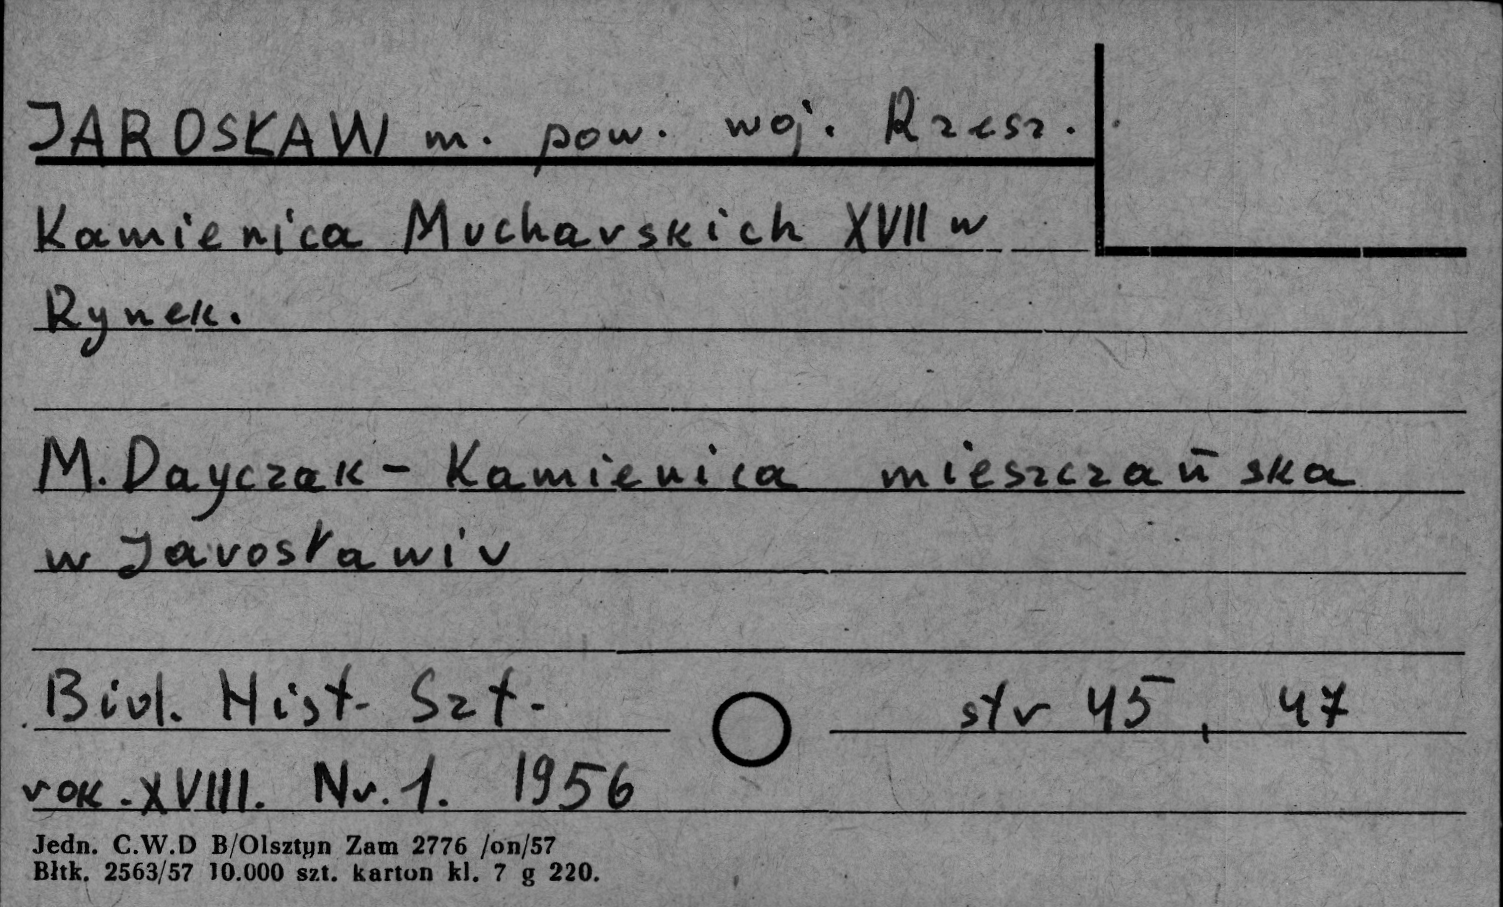 JAROSŁAW m. pow. woj. Rzesz.
Kamienica Mucharskich XVII w
Rynek.
M. Dayczak - Kamienica mieszczańska
w Jarosławiu
Biul. Hist. Szt. str 45, 47
rok. XVIII. Nr. 1. 1956
Jedn. C.W.D B/Olsztyn Zam 2776 /on/57
Błtk. 2563/57 10.000 szt. karton kl. 7 g 220.